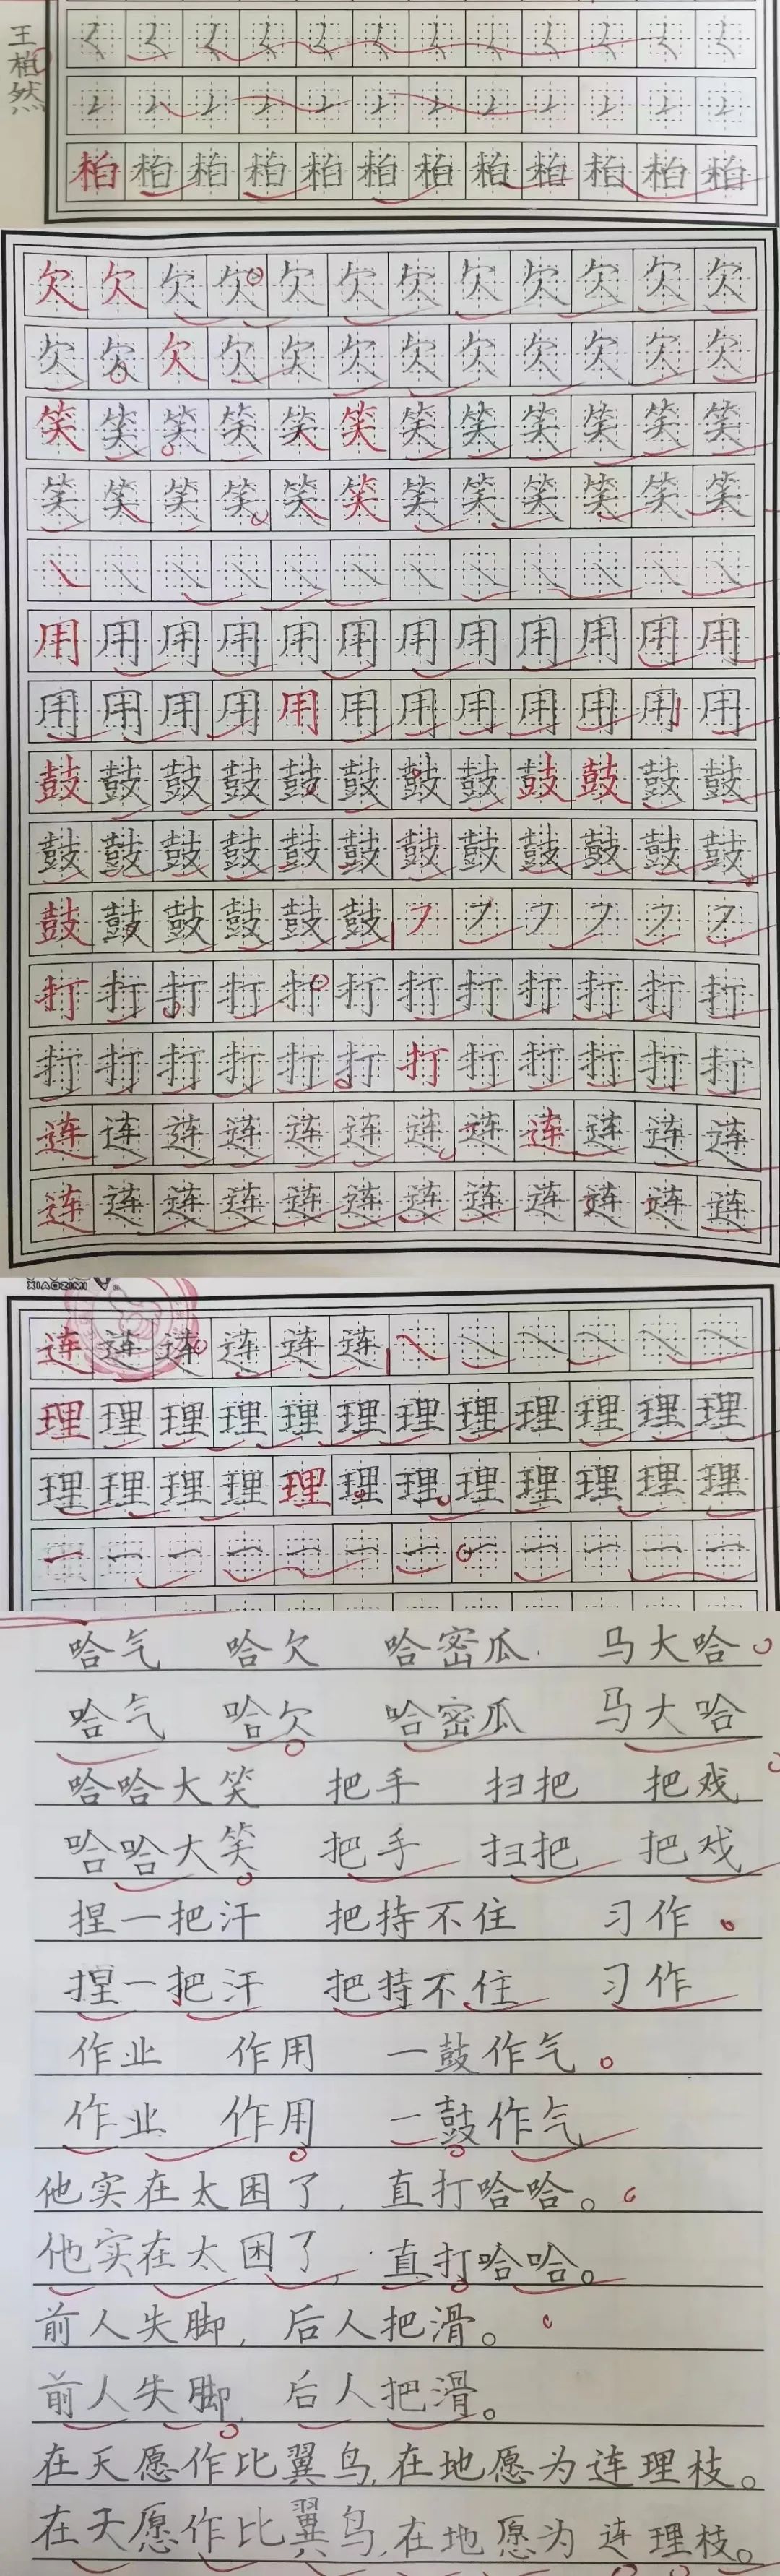 王柏然
柏柏柏柏柏柏柏柏柏柏柏柏
欠欠欠欠欠欠欠欠欠欠欠欠
欠欠欠欠欠欠欠欠欠欠欠欠
笑笑笑笑笑笑笑笑笑笑笑笑
笑笑笑笑笑笑笑笑笑笑笑笑
用用用用用用用用用用用用
用用用用用用用用用用用用
鼓鼓鼓鼓鼓鼓鼓鼓鼓鼓鼓鼓
鼓鼓鼓鼓鼓鼓鼓鼓鼓鼓鼓鼓
鼓鼓鼓鼓鼓鼓
打打打打打打打打打打打打
打打打打打打打打打打打打
连连连连连连连连连连连连
连连连连连连连连连连连连
XIAOZIMI
连连连连连连
理理理理理理理理理理理理
理理理理理理理理理理理理
一一一一一一一一一一一一
哈气 哈欠 哈密瓜 马大哈
哈气 哈欠 哈密瓜 马大哈
哈哈大笑 把手 扫把 把戏
哈哈大笑 把手 扫把 把戏
捏一把汗 把持不住 习作
捏一把汗 把持不住 习作
作业 作用 一鼓作气
作业 作用 一鼓作气
他实在太困了,直打哈哈。
他实在太困了,直打哈哈。
前人失脚,后人把滑。
前人失脚,后人把滑。
在天愿作比翼鸟,在地愿为连理枝。
在天愿作比翼鸟,在地愿为连理枝。